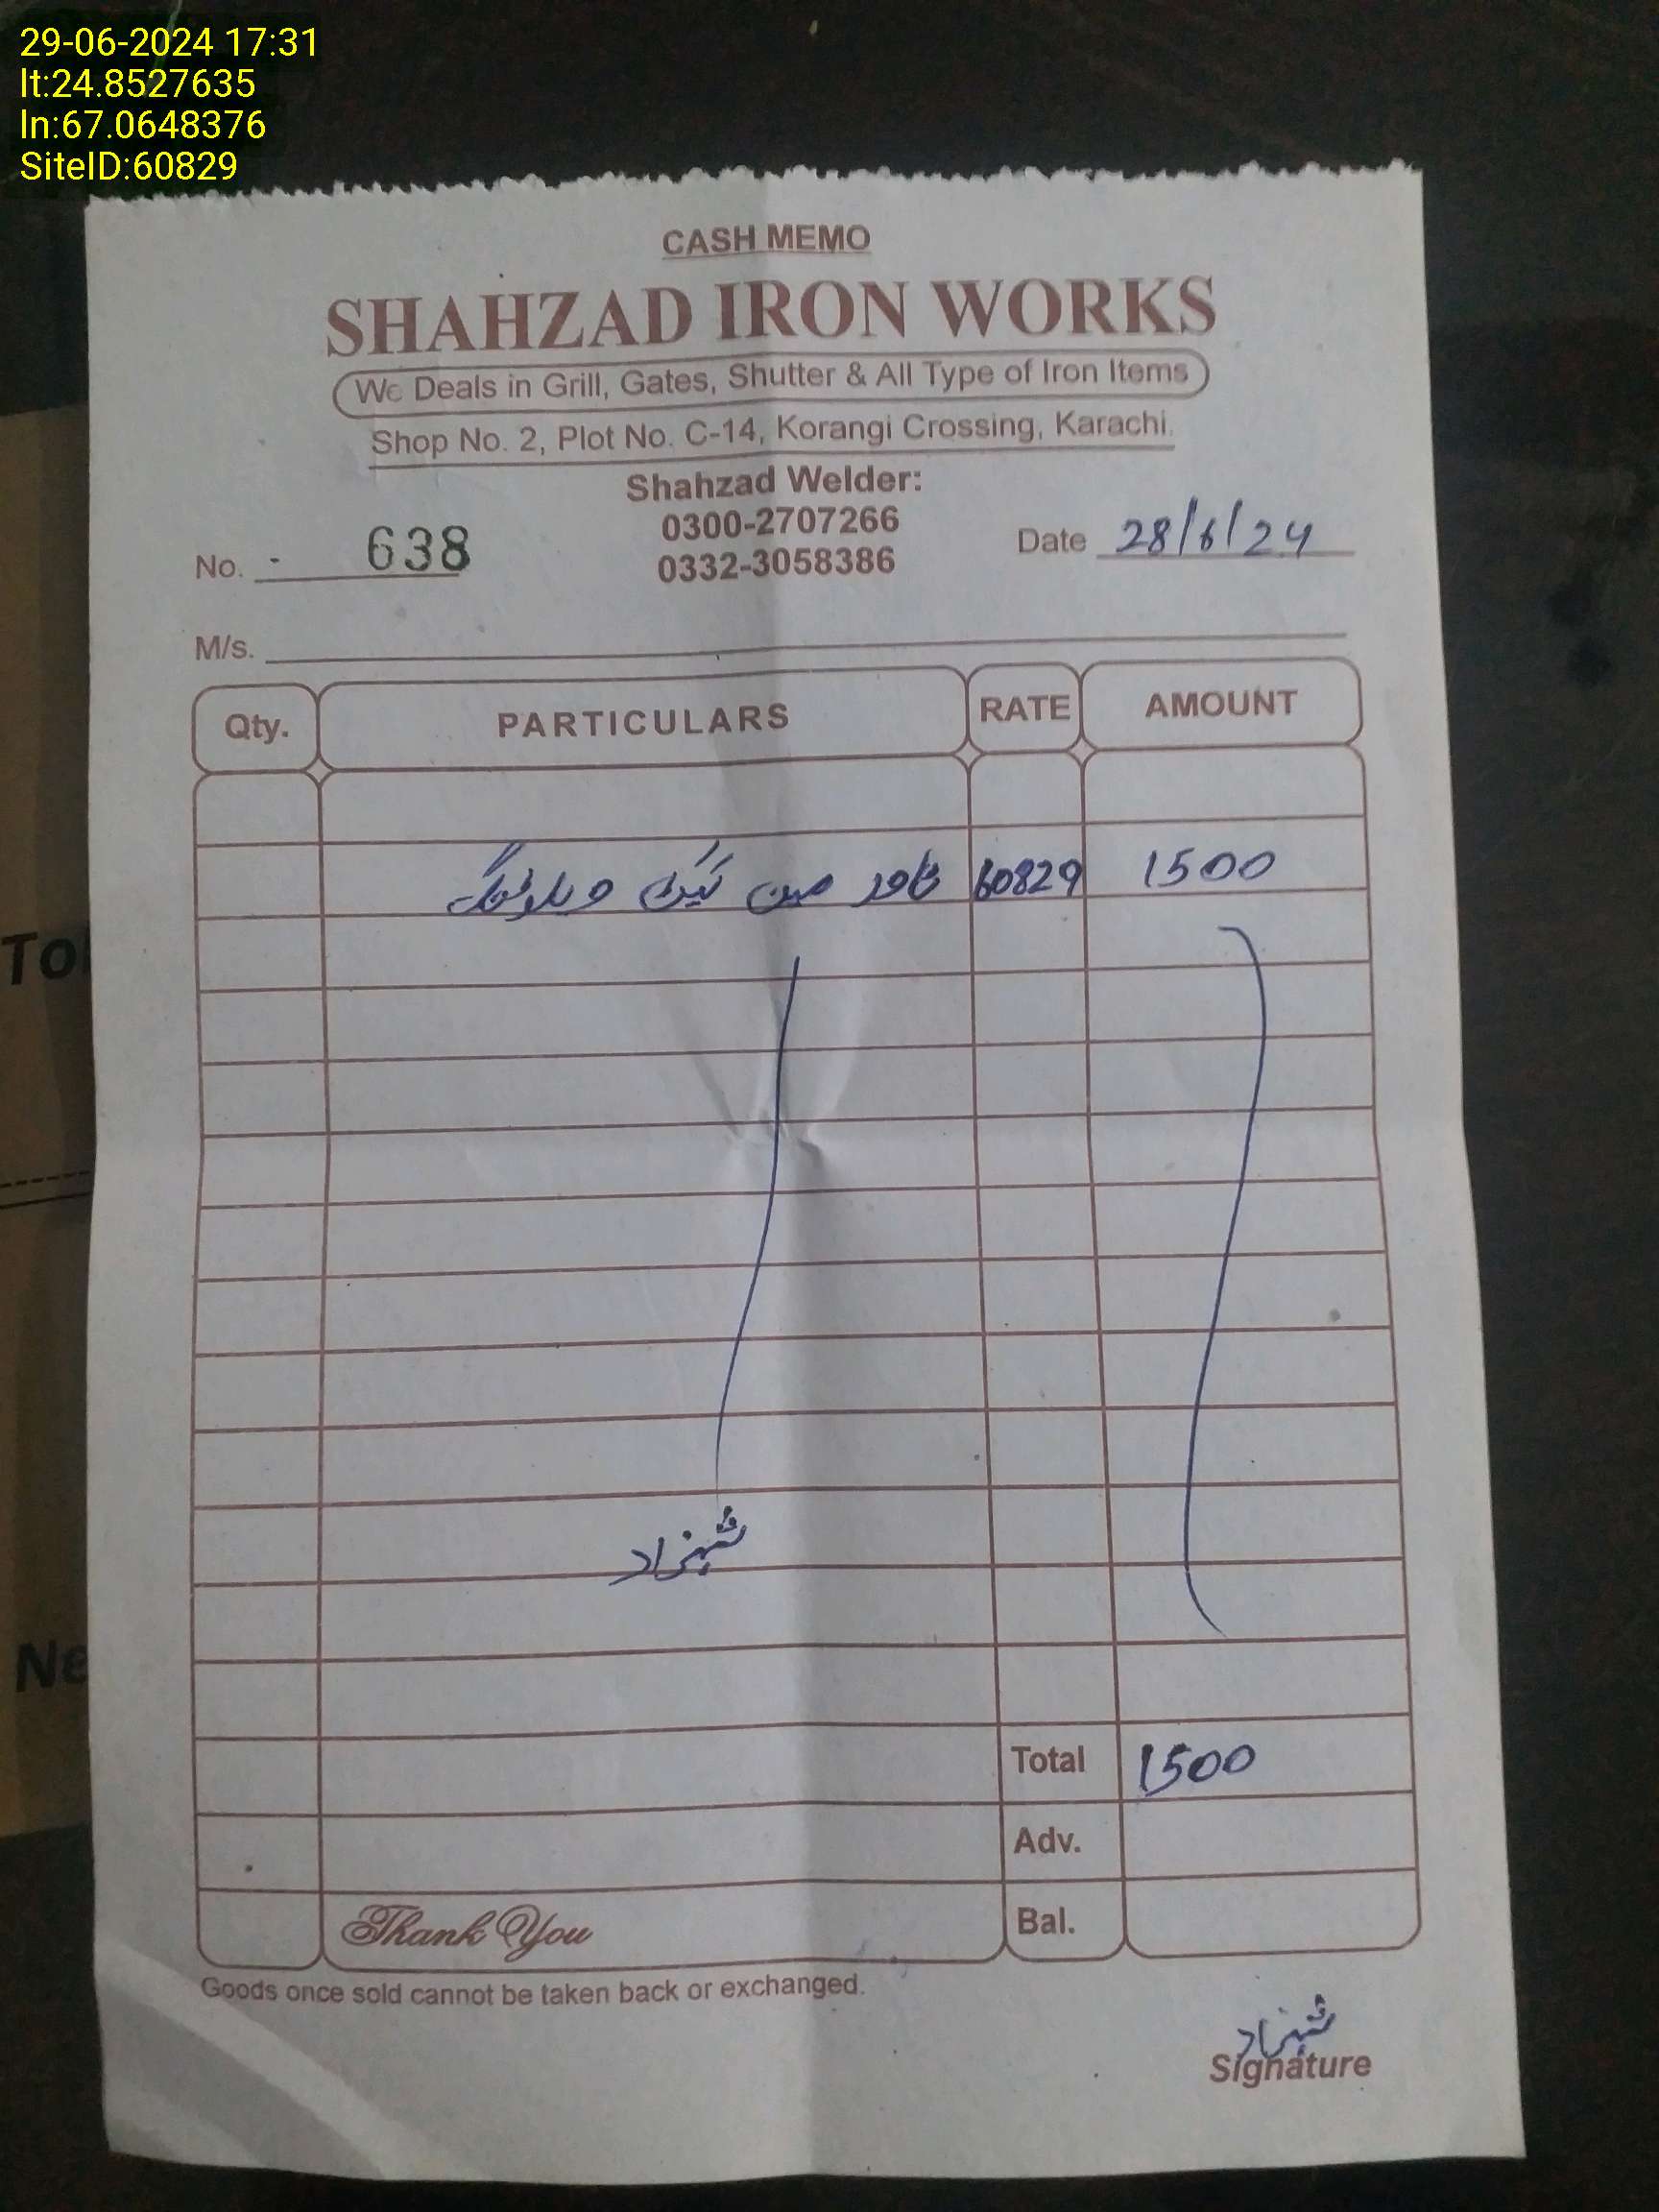 29-06-2024 17:31
lt:24.8527635
ln:67.0648376
SiteID:60829
CASH MEMO
SHAHZAD IRON WORKS
We Deals in Grill, Gates, Shutter & All Type of Iron Items
Shop No. 2, Plot No. C-14, Korangi Crossing, Karachi.
Shahzad Welder:
0300-2707266
0332-3058386
No. - 638
Date 28/6/24
M/s.
Qty. PARTICULARS RATE AMOUNT
ٹاور مین گیٹ ویلڈنگ 60829 1500
شہزاد
Total 1500
Adv.
Bal.
Thank You
Goods once sold cannot be taken back or exchanged.
شہزاد
Signature
To
Ne